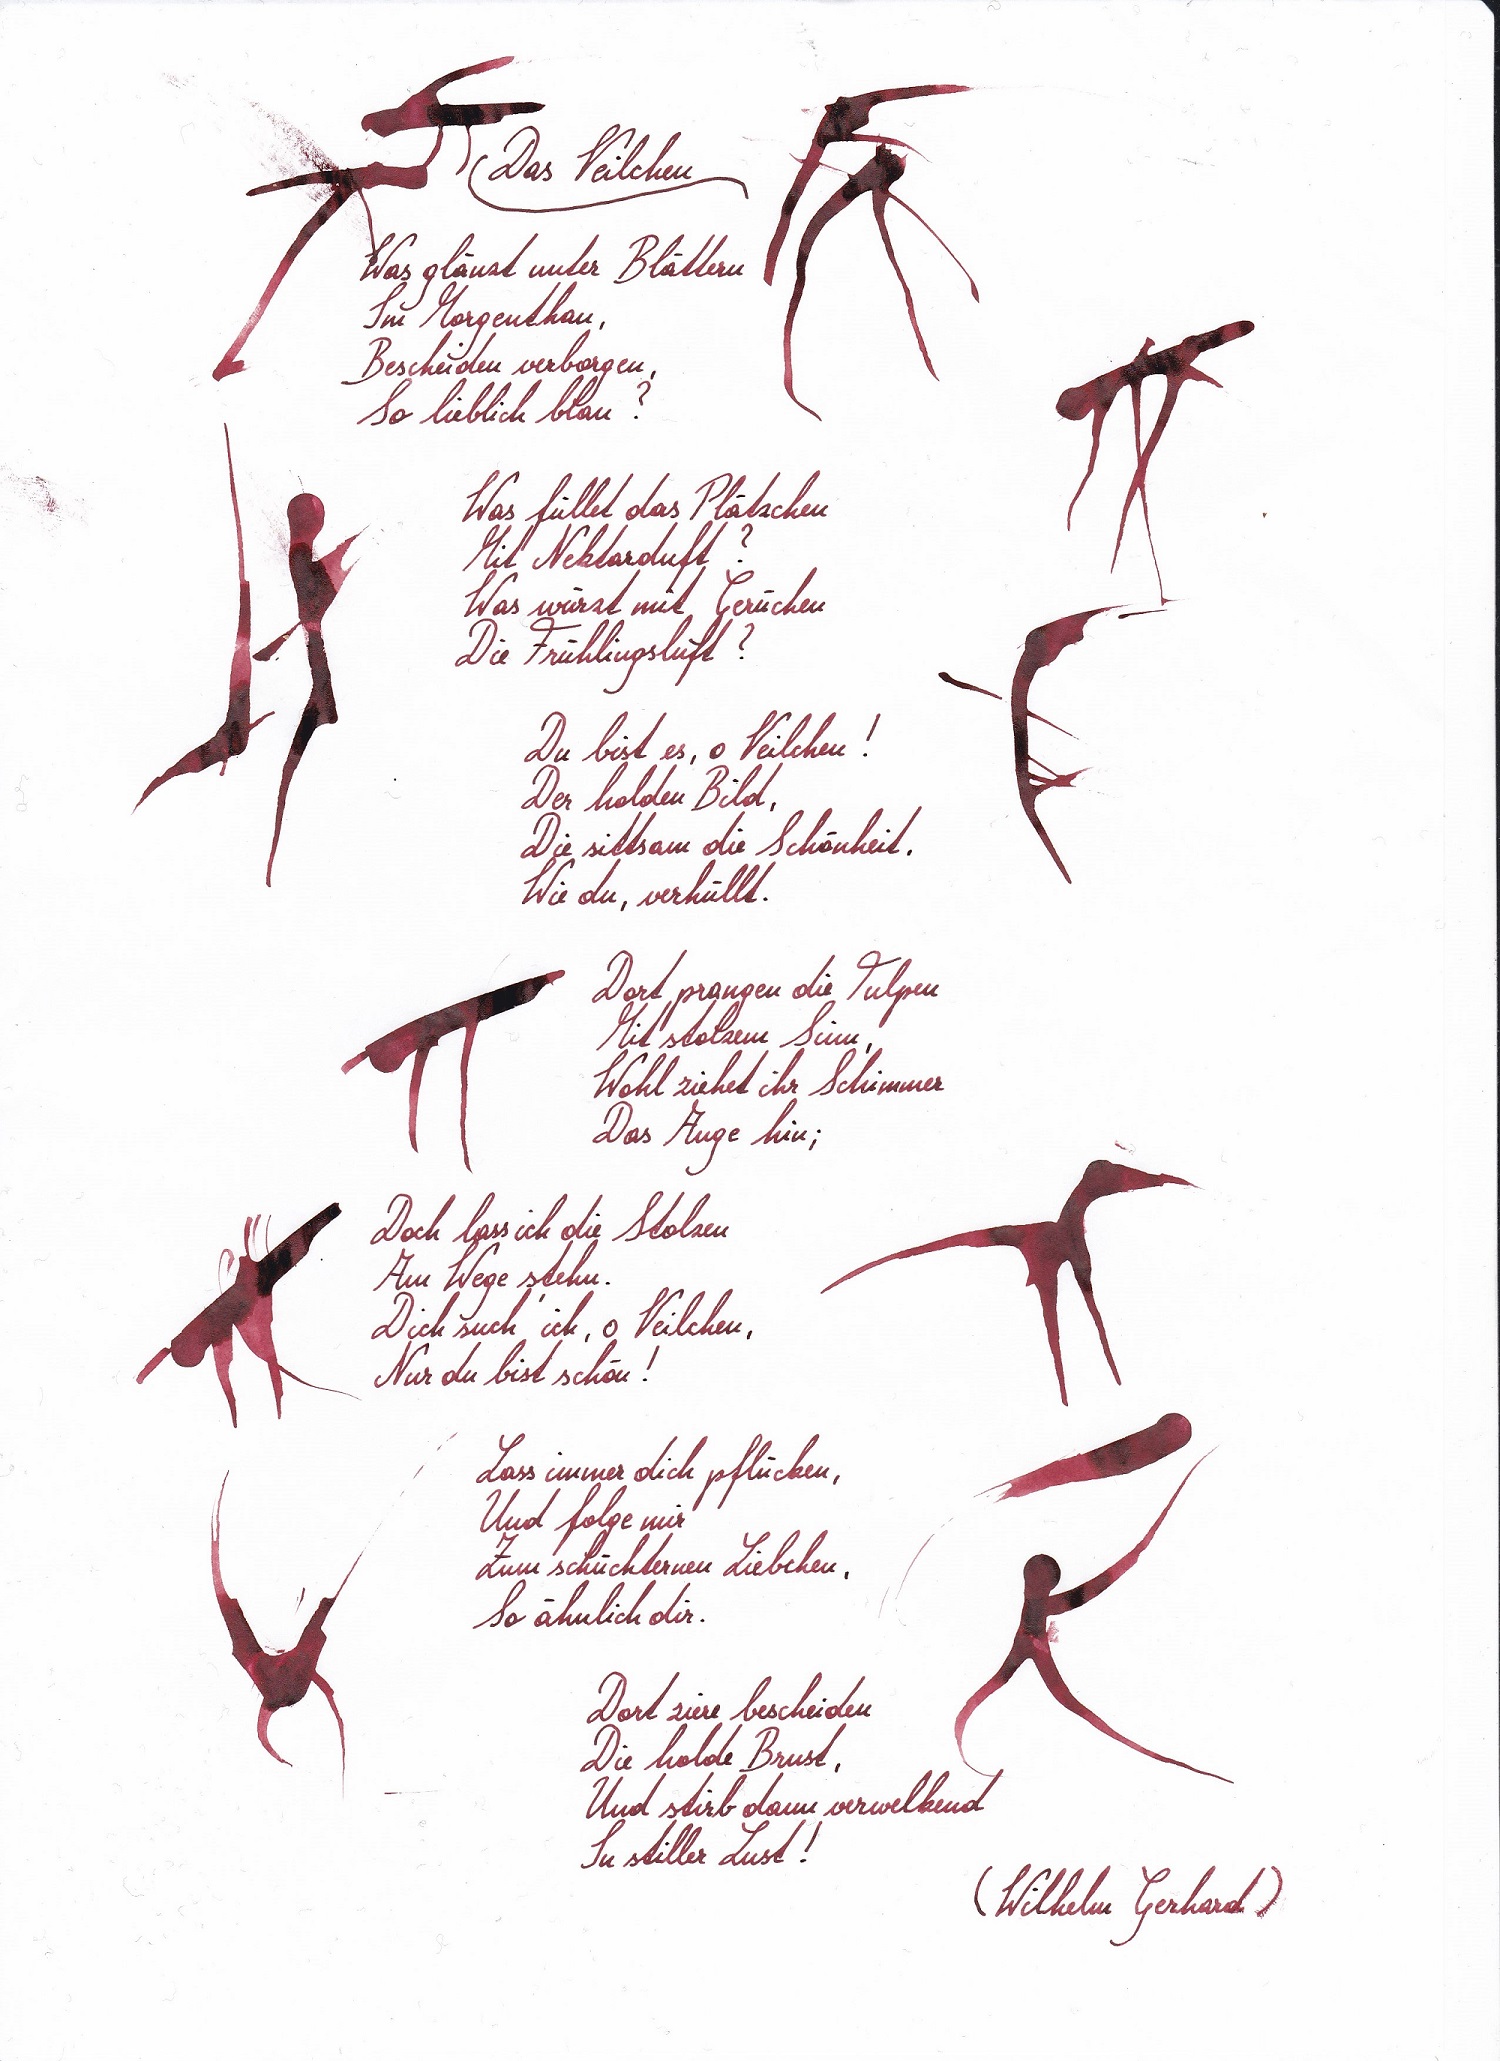 Das Veilchen
Was glänzt unter Blättern
Im Morgenthau,
Bescheiden verborgen,
So lieblich blau?
Was füllet das Plätzchen
Mit Nektarduft?
Was würzt mit Gerüchen
Die Frühlingsluft?
Du bist es, o Veilchen!
Der holden Bild,
Die sittsam die Schönheit,
Wie du, verhüllt.
Dort prangen die Tulpen
Mit stolzem Sinn,
Wohl ziehet ihr Schimmer
Das Auge hin;
Doch lass ich die Stolzen
Am Wege stehn.
Dich such' ich, o Veilchen,
Nur du bist schön!
Lass immer dich pflücken,
Und folge mir
Zum schüchternen Liebchen,
So ähnlich dir.
Dort ziere bescheiden
Die holde Brust,
Und stirb dann verwelkend
In stiller Lust!
(Wilhelm Gerhard)